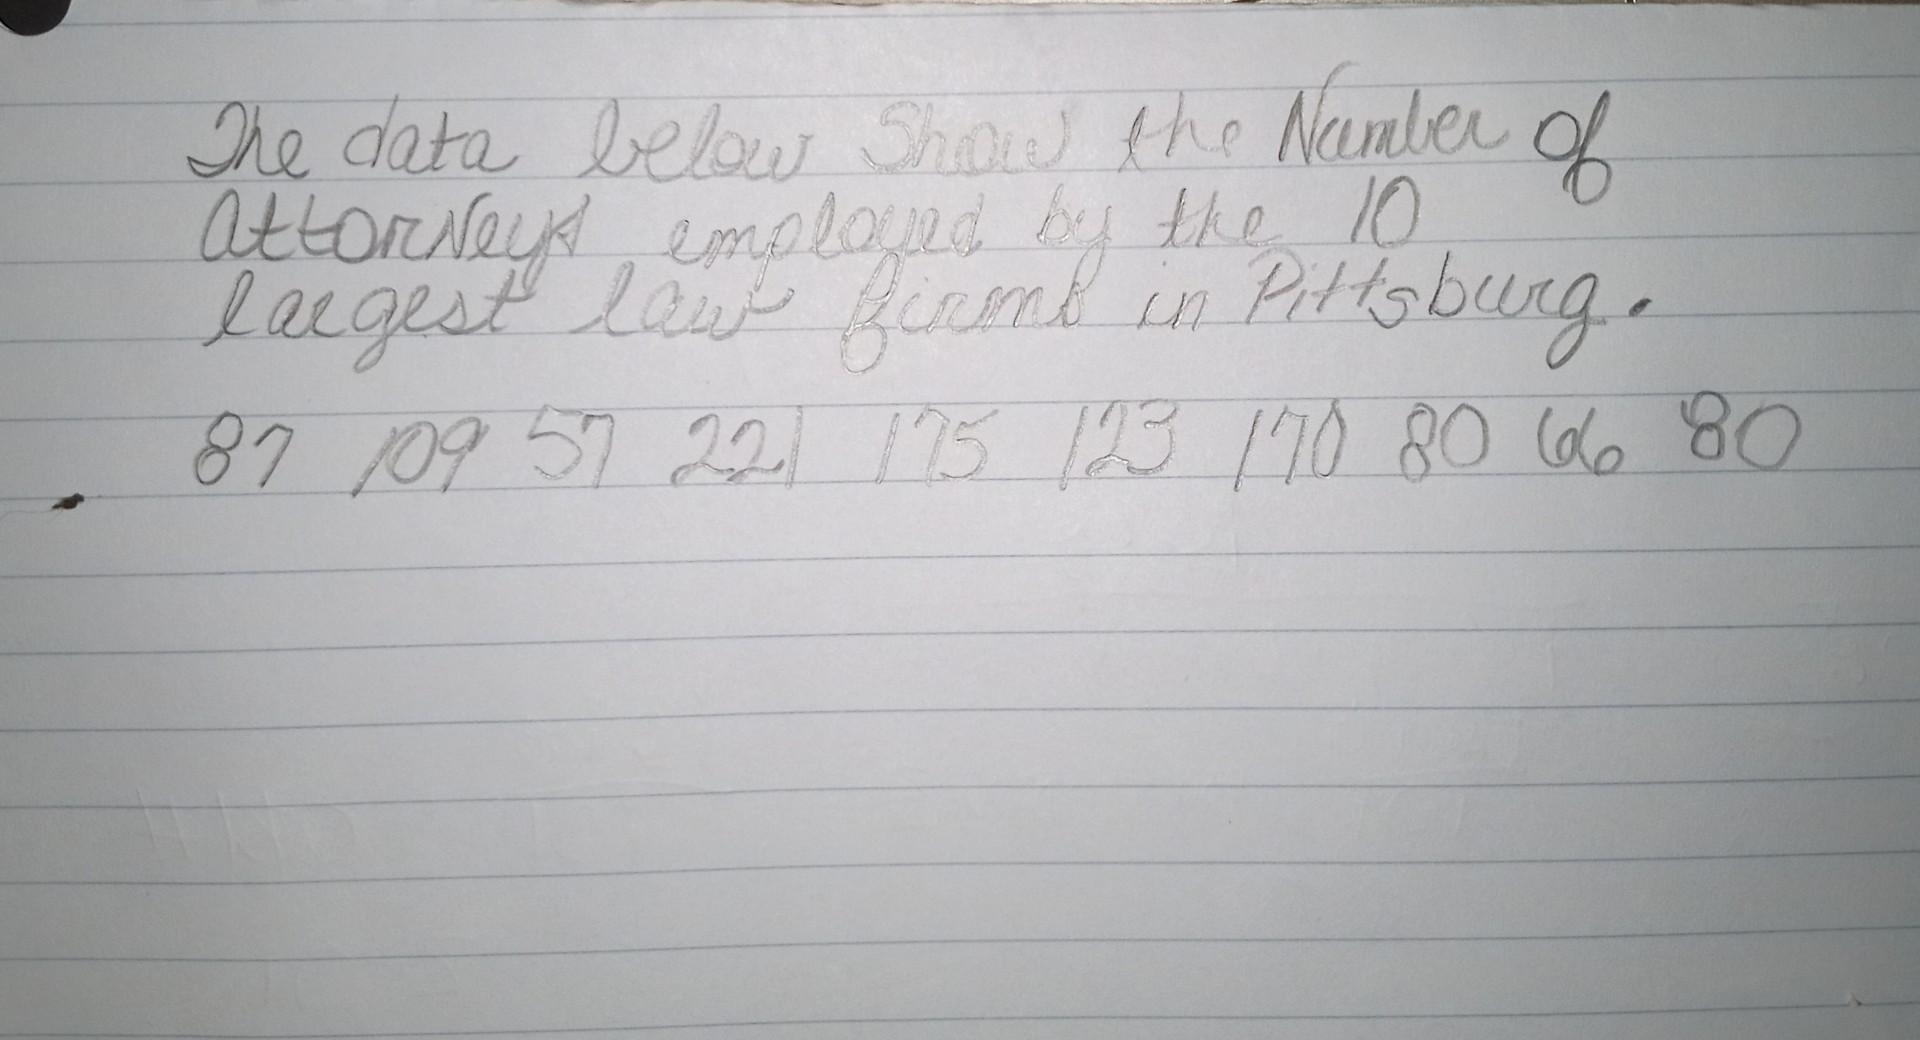 The data below Show the Number of
AttorNeys employed by the 10
largest law firms in Pittsburg.
87 109 57 221 175 123 170 80 66 80